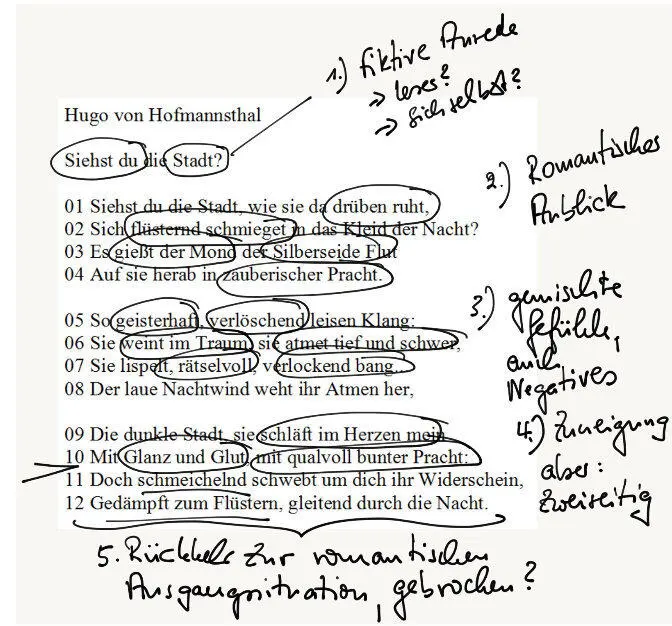 1.) fiktive Anrede
→ leser?
→ Sich selbst?
Hugo von Hofmannsthal
Siehst du die Stadt?
2.) Romantisches
Anblick
01 Siehst du die Stadt, wie sie da drüben ruht,
02 Sich flüsternd schmieget in das Kleid der Nacht?
03 Es gießt der Mond der Silberseide Flut
04 Auf sie herab in zauberischer Pracht.
3.) gemischte
Gefühle,
auch
Negatives
05 So geisterhaft, verlöschend leisen Klang:
06 Sie weint im Traum, sie atmet tief und schwer,
07 Sie lispelt, rätselvoll, verlockend bang...
08 Der laue Nachtwind weht ihr Atmen her,
4.) Zuneigung
aber:
zweiseitig
09 Die dunkle Stadt, sie schläft im Herzen mein
10 Mit Glanz und Glut, mit qualvoll bunter Pracht:
11 Doch schmeichelnd schwebt um dich ihr Widerschein,
12 Gedämpft zum Flüstern, gleitend durch die Nacht.
5. Rückkehr zur romantischen
Ausgangssituation, gebrochen?